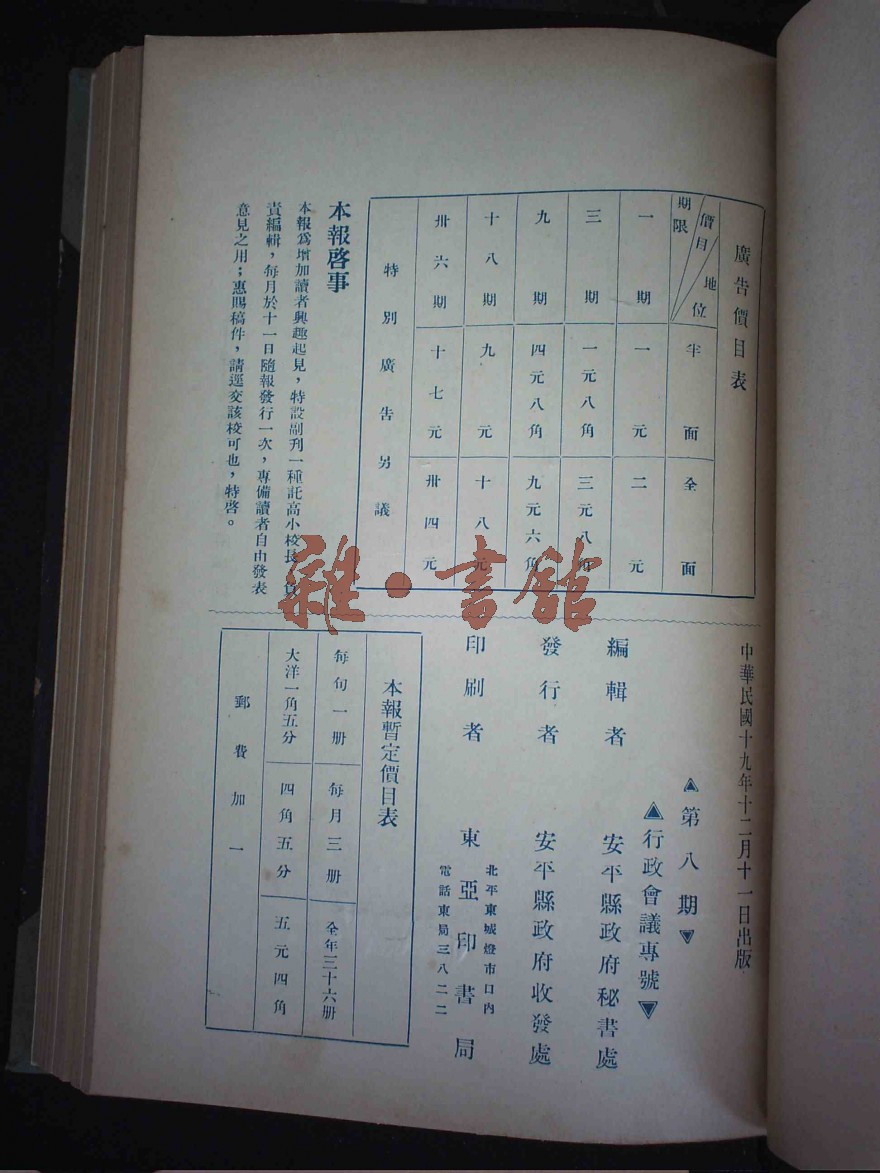 廣告價目表
期限 價目 地位 半面 全面
一期 一元 二元
三期 一元八角 三元八角
九期 四元八角 九元六角
十八期 九元 十八元
卅六期 十七元 卅四元
特別廣告另議
本報啓事
本報爲增加讀者興趣起見，特設副刋一種託高小校長負
責編輯，每月於十一日隨報發行一次，專備讀者自由發表
意見之用；惠賜稿件，請逕交該校可也，特啓。
中華民國十九年十二月十一日出版
▲第八期▼
▲行政會議專號▼
編輯者 安平縣政府秘書處
發行者 安平縣政府收發處
印刷者 東亞印書局
北平東城燈市口內
電話東局三八二二
本報暫定價目表
每旬一册 每月三册 全年三十六册
大洋一角五分 四角五分 五元四角
郵費加一
雜·書舘